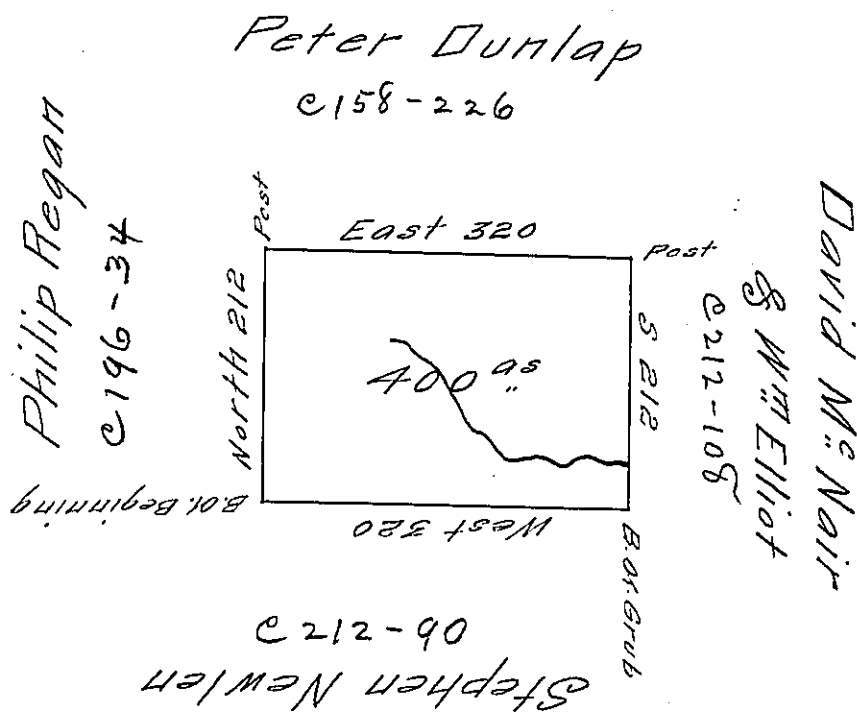 Peter Dunlap
C158-226
Philip Regan
C196-34
Post
East 320
Post
North 212
400 as
S 212
David Mc. Nair
& Wm Elliot
C212-108
B.O. Beginning
West 320
B.O. Grub
C212-90
Stephen Newlen